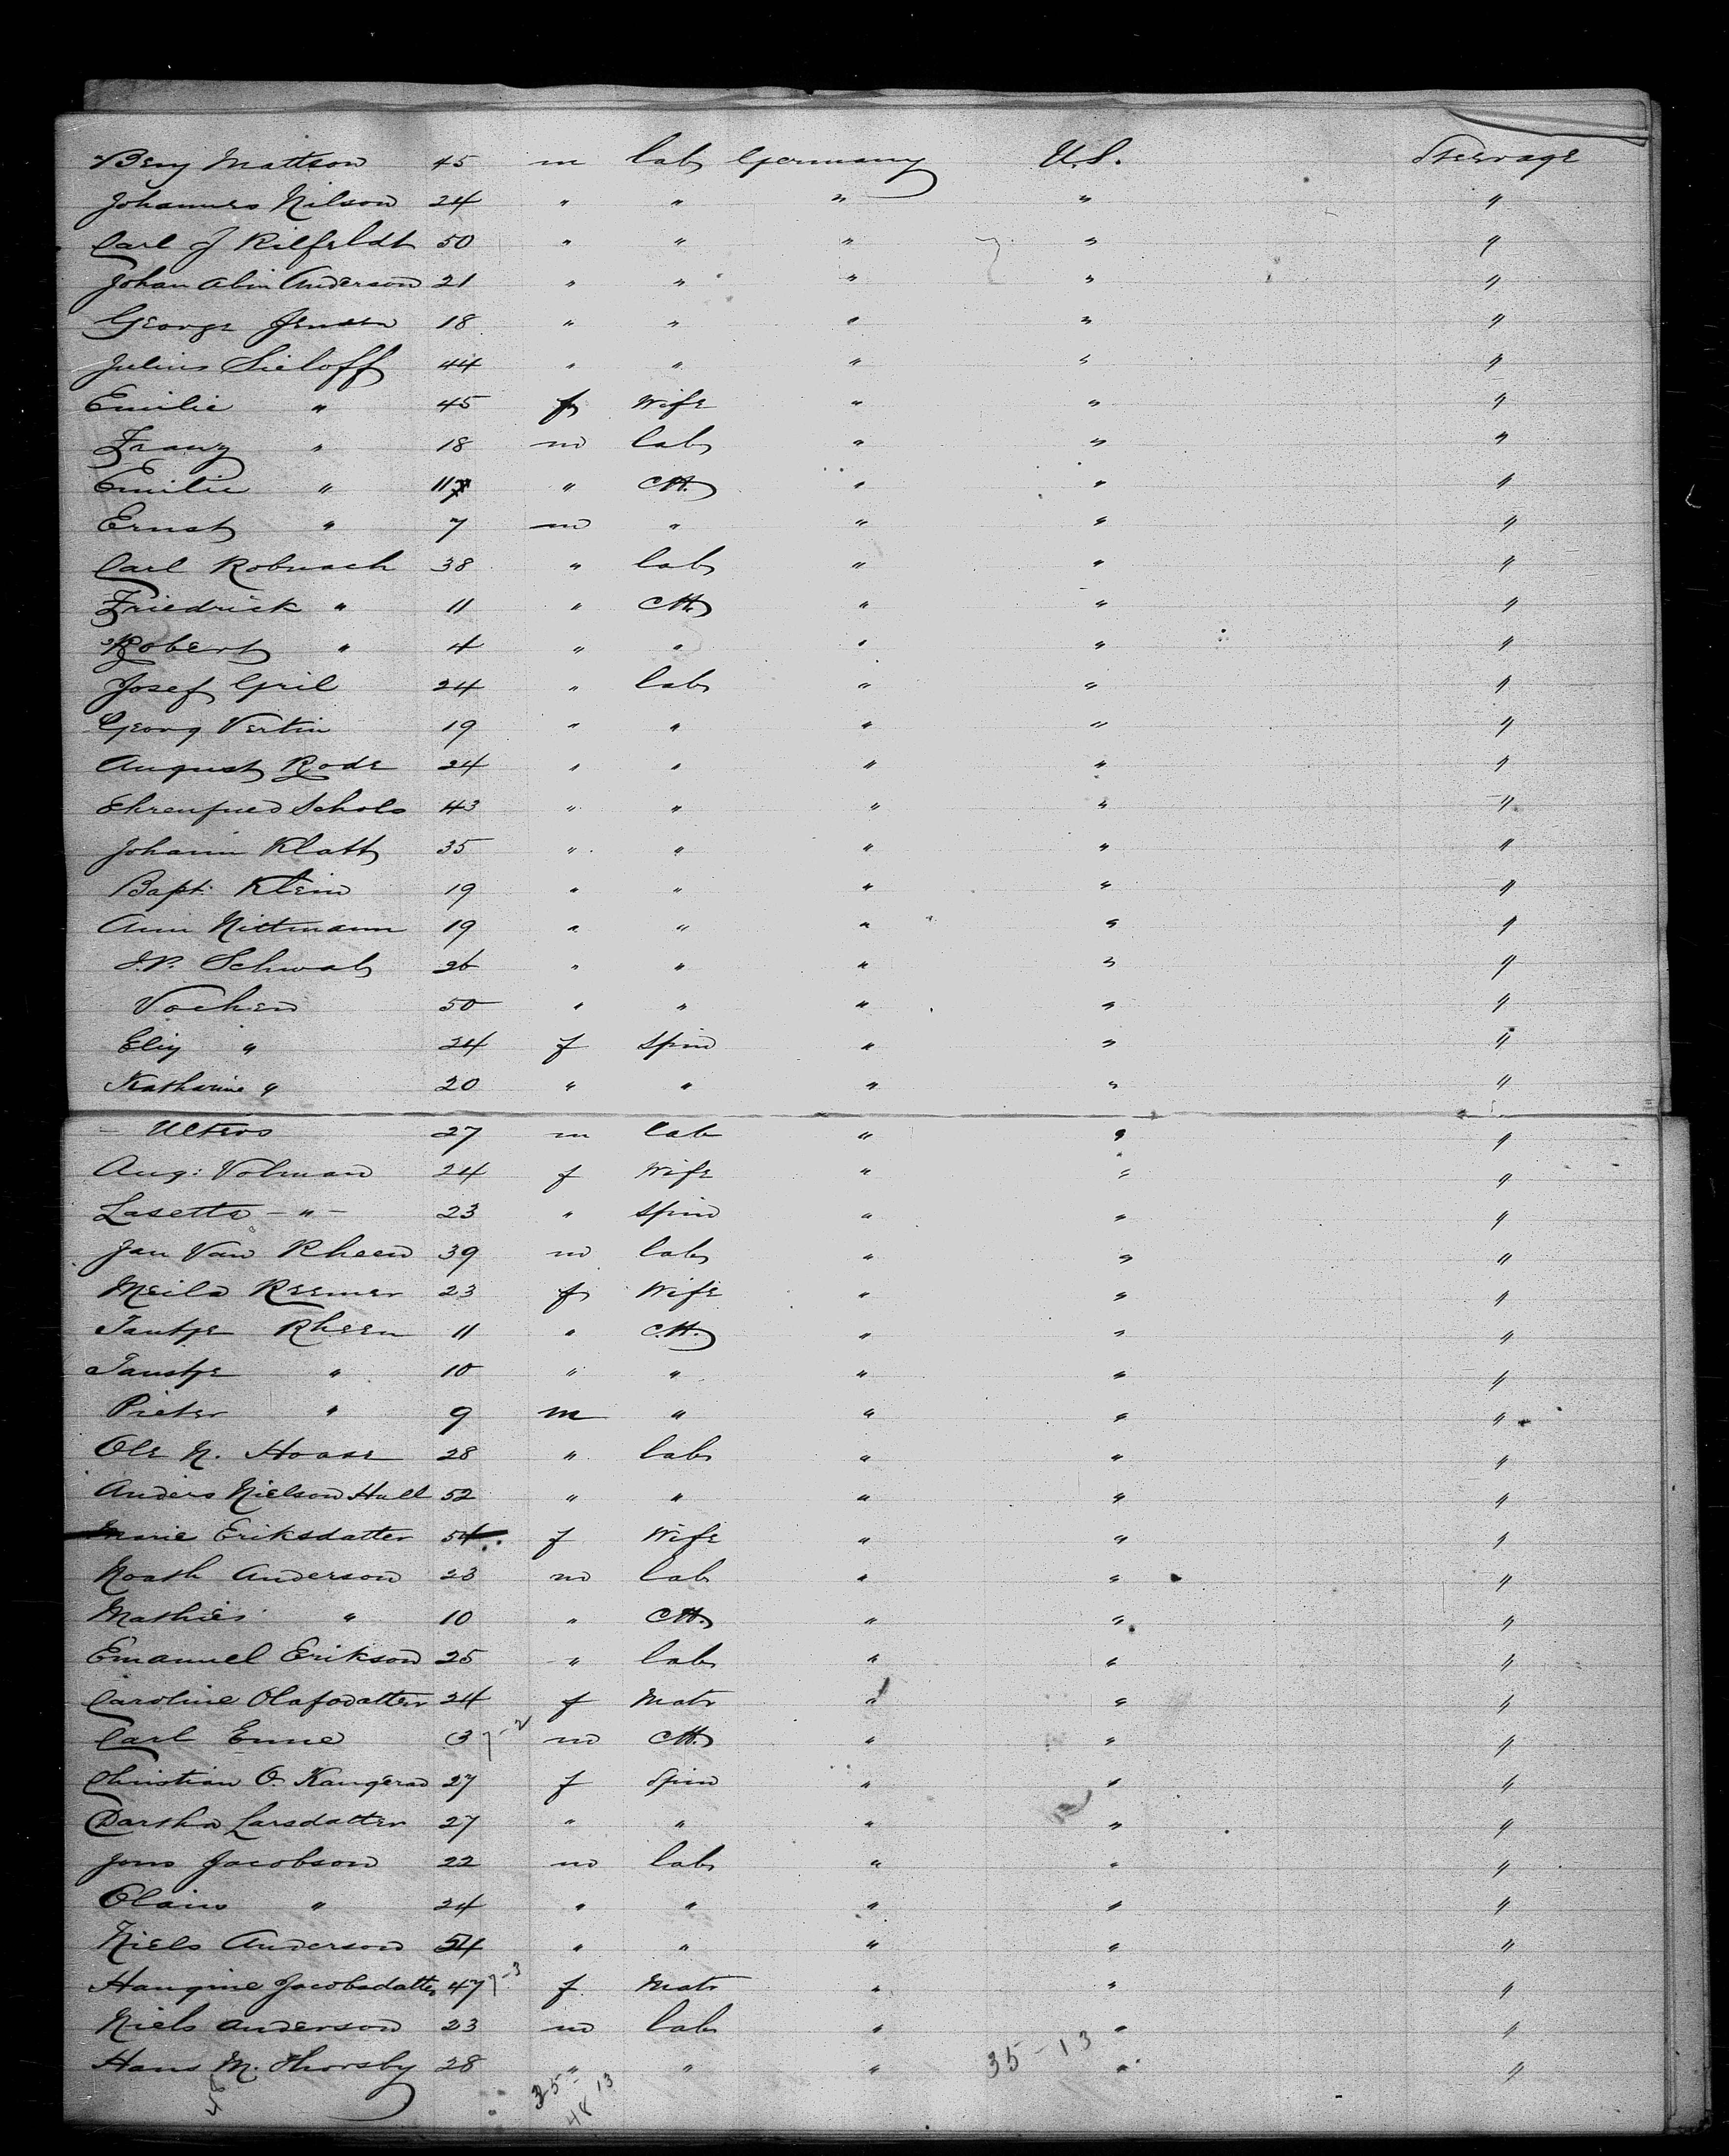 Beng Mattson 45 m lab Germany U.S. Steerage
Johannes Nilson 24 " " " " "
Carl J Rilfeldt 50 " " " " "
Johan Alin Anderson 21 " " " " "
George Jensen 18 " " " " "
Julius Sieloff 44 " " " " "
Emilie " 45 f Wife " " "
Franz " 18 m lab " " "
Emilie " 11 " Ch. " " "
Ernst " 7 m " " " "
Carl Robnach 38 " lab " " "
Friedrick " 11 " Ch. " " "
Robert " 4 " " " " "
Josef Gril 24 " lab " " "
Georg Vertin 19 " " " " "
August Rode 24 " " " " "
Ehrenfried Schols 43 " " " " "
Johann Klatt 35 " " " " "
Bapt. Klein 19 " " " " "
Ann Nittmann 19 " " " " "
J.P. Schwab 26 " " " " "
Vochen 50 " " " " "
Eliz " 24 f Spin " " "
Katharine " 20 " " " " "
27 m lab " " "
Aug: Volman 24 f Wife " " "
Lasetta - " - 23 " Spin " " "
Jan Van Rheen 39 m lab " " "
Meila Reemer 23 f Wife " " "
Tautje Rheen 11 " C.H. " " "
Taustje " 10 " " " " "
Pieter " 9 m " " " "
Ole N. Hoase 28 " lab " " "
Anders Nielson Hull 52 " " " " "
Marie Eriksdatter 54 f Wife " " "
Noath Anderson 23 m lab " " "
Mathies " 10 " Ch. " " "
Emanuel Erikson 25 " lab " " "
Caroline Olafsdatter 24 f Matr " " "
Carl Enne 3 } -2 m Ch. " " "
Christian O. Kangerad 27 f Spin " " "
Dartha Larsdatter 27 " " " " "
Jens Jacobson 22 m lab " " "
Olaus " 24 " " " " "
Niels Anderson 54 " " " " "
Haugine Jacobsdatter 47 } -3 f Matr " " "
Niels Anderson 23 m lab " " "
Hans M. Thorsby 28 " " " " "
35 - 13
48
35 - 13
48